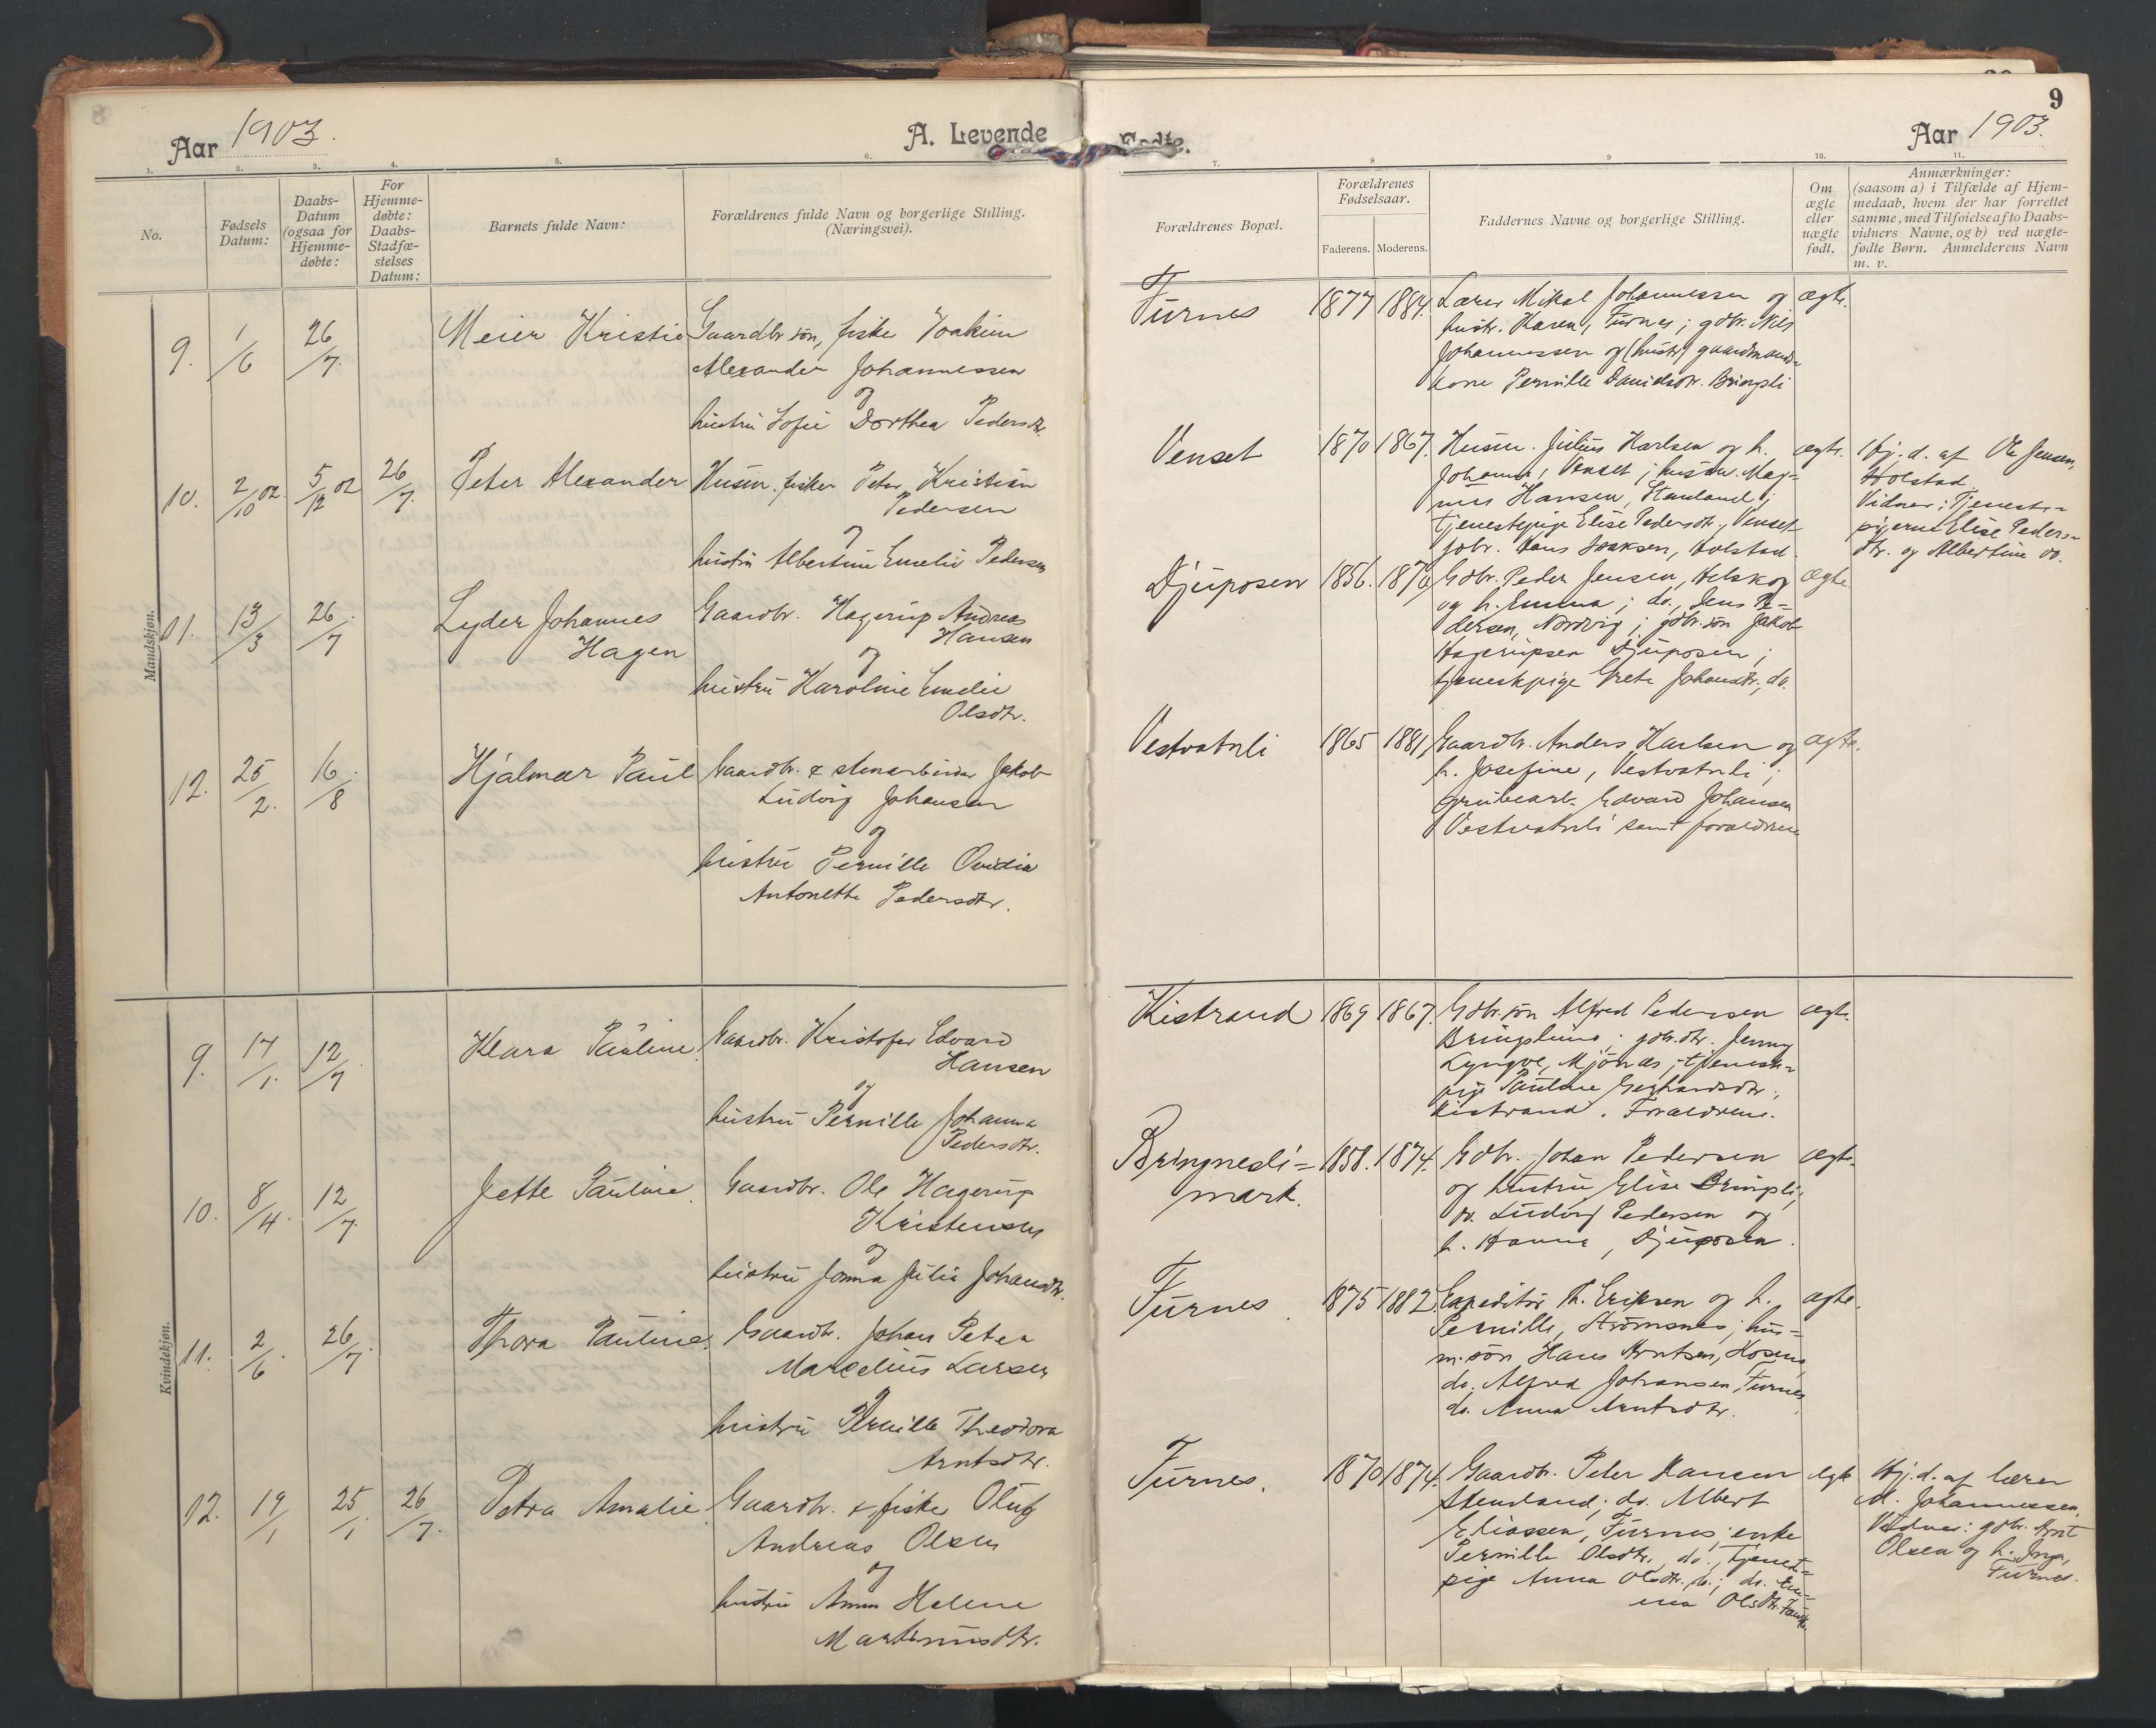 8
Aar 1903.
A. Levende
1. 2. 3. 4. 5. 6.
No.
Fødsels Datum:
Daabs-
Datum
(ogsaa for
Hjemme-
døbte:
For
Hjemme-
døbte:
Daabs-
Stadfæ-
stelses
Datum:
Barnets fulde Navn:
Forældrenes fulde Navn og borgerlige Stilling.
(Næringsvei).
Mandskjøn.
9. 1/6 26/7. Meier Kristie Gaardbr søn, fisker Joakim
Alexander Johannessen
og
hustru Sofie Dorthea Pedersdtr.
10. 2/10 02. 5/12 02 26/7. Peter Alexander Husm. fisker Peter Kristian
Pedersen
og
hustru Albertine Emelie Pedersen
11. 13/3 26/7. Lyder Johannes Gaardbr. Hagerup Andreas
Hagen Hansen
og
hustru Karoline Emelie
Olsdtr.
12. 25/2. 16/8. Hjalmar Paul Gaardbr. & stenarbeider Jakob
Ludvig Johansen
og
hustru Pernille Ovidia
Antonette Pedersdtr.
Kvindekjøn.
9. 17/1. 12/7. Klara Pauline. Gaardbr. Kristofer Edvard
Hansen
og
hustru Pernille Johanna
Pedersdtr.
10. 8/4. 12/7. Jette Pauline. Gaardbr. Ole Hagerup
Kristensen
og
hustru Julie Johansdtr.
11. 2/6. 26/7. Thora Pauline. Gaardbr. Johan Peter
Marcelius Larsen
og
hustru Pernille Theodora
Arntsdtr.
12. 19/1 25/1 26/7. Petra Amalie. Gaardbr. & fisker Oluf
Andreas Olsen
og
hustru Anna Helene
Martinusdtr.
9
Fødte.
Aar 1903.
7. 8 9 10. 11.
Forældrenes Bopæl.
Forældrenes
Fødselsaar.
Faderens. Moderens.
Faddernes Navne og borgerlige Stilling.
Om
ægte
eller
uægte
født.
Anmærkninger:
(saasom a) i Tilfælde af Hjem-
medaab, hvem der har forrettet
samme, med Tilføielse af to Daabs-
vidners Navne, og b) ved uægte-
fødte Børn. Anmelderens Navn
m. v.
Furnes 1877 1884. Lærer Mikal Johannessen og ægte.
hustr. Karen, Furnes; gdbr. Nils
Johannessen og (hustr) gaardmands-
kone Pernille Danielsdtr. Bringsli
Venset 1870 1867. Husm. Julius Karlsen og h. ægte. Hj. d. af Ole Jensen,
Johanna, Venset; husm. Mag= Holstad.
nus Hansen, Stenland; Vidner: Tjeneste=
tjenestepige Elise Pedersdtr., Venset pigerne Elise Peders=
gdbr. Hans Isaksen, Holstad. dtr. og Albertine do.
Djuposen 1856. 1870 Gdbr. Peder Jensen, Helskog ægte
og h. Emma; do. Jens Pe=
dersen, Nordvig; gdbr. søn Jakob
Hagerupsen Djuposen;
tjenestepige Grete Johansdtr., do.
Vestvatnli 1865 1881 Gaardbr. Anders Karlsen og ægte.
h. Josefine, Vestvatnli;
grubearb. Edvard Johansen
Vestvatnli samt forældrene
Kistrand 1869 1867. Gdbr. søn Alfred Pedersen ægte.
gdbr.dtr. Jenny
Lyngve, Mjønes; tjeneste=
pige Pauline Gerhardsdtr.,
Kistrand. Forældrene.
Bringsli= 1858. 1874. Gdbr. Johan Pedersen ægte.
mark. og hustru Elise Bringsli;
do. Ludvig Pedersen og
h. Hanna, Djuposen.
Furnes. 1875 1882. Expeditør Th. Eriksen og h. ægte.
Pernille, Strømsnes; hus=
m. søn Hans Arntsen,
do. Alfred Johansen, Furnes
do. Anna Arntsdtr.
Furnes. 1870 1874. Gaardbr. Peter Hansen ægte Hj. d. af lærer
Stenland; do. Albert M. Johannessen.
Eliassen, Furnes; enke Vidner: gdbr. Arnt
Pernille Olsdtr., do., tjeneste= Olsen og h. Inga,
pige Anna Olsdtr. do.; do. Em= Furnes.
ma Olsdtr.